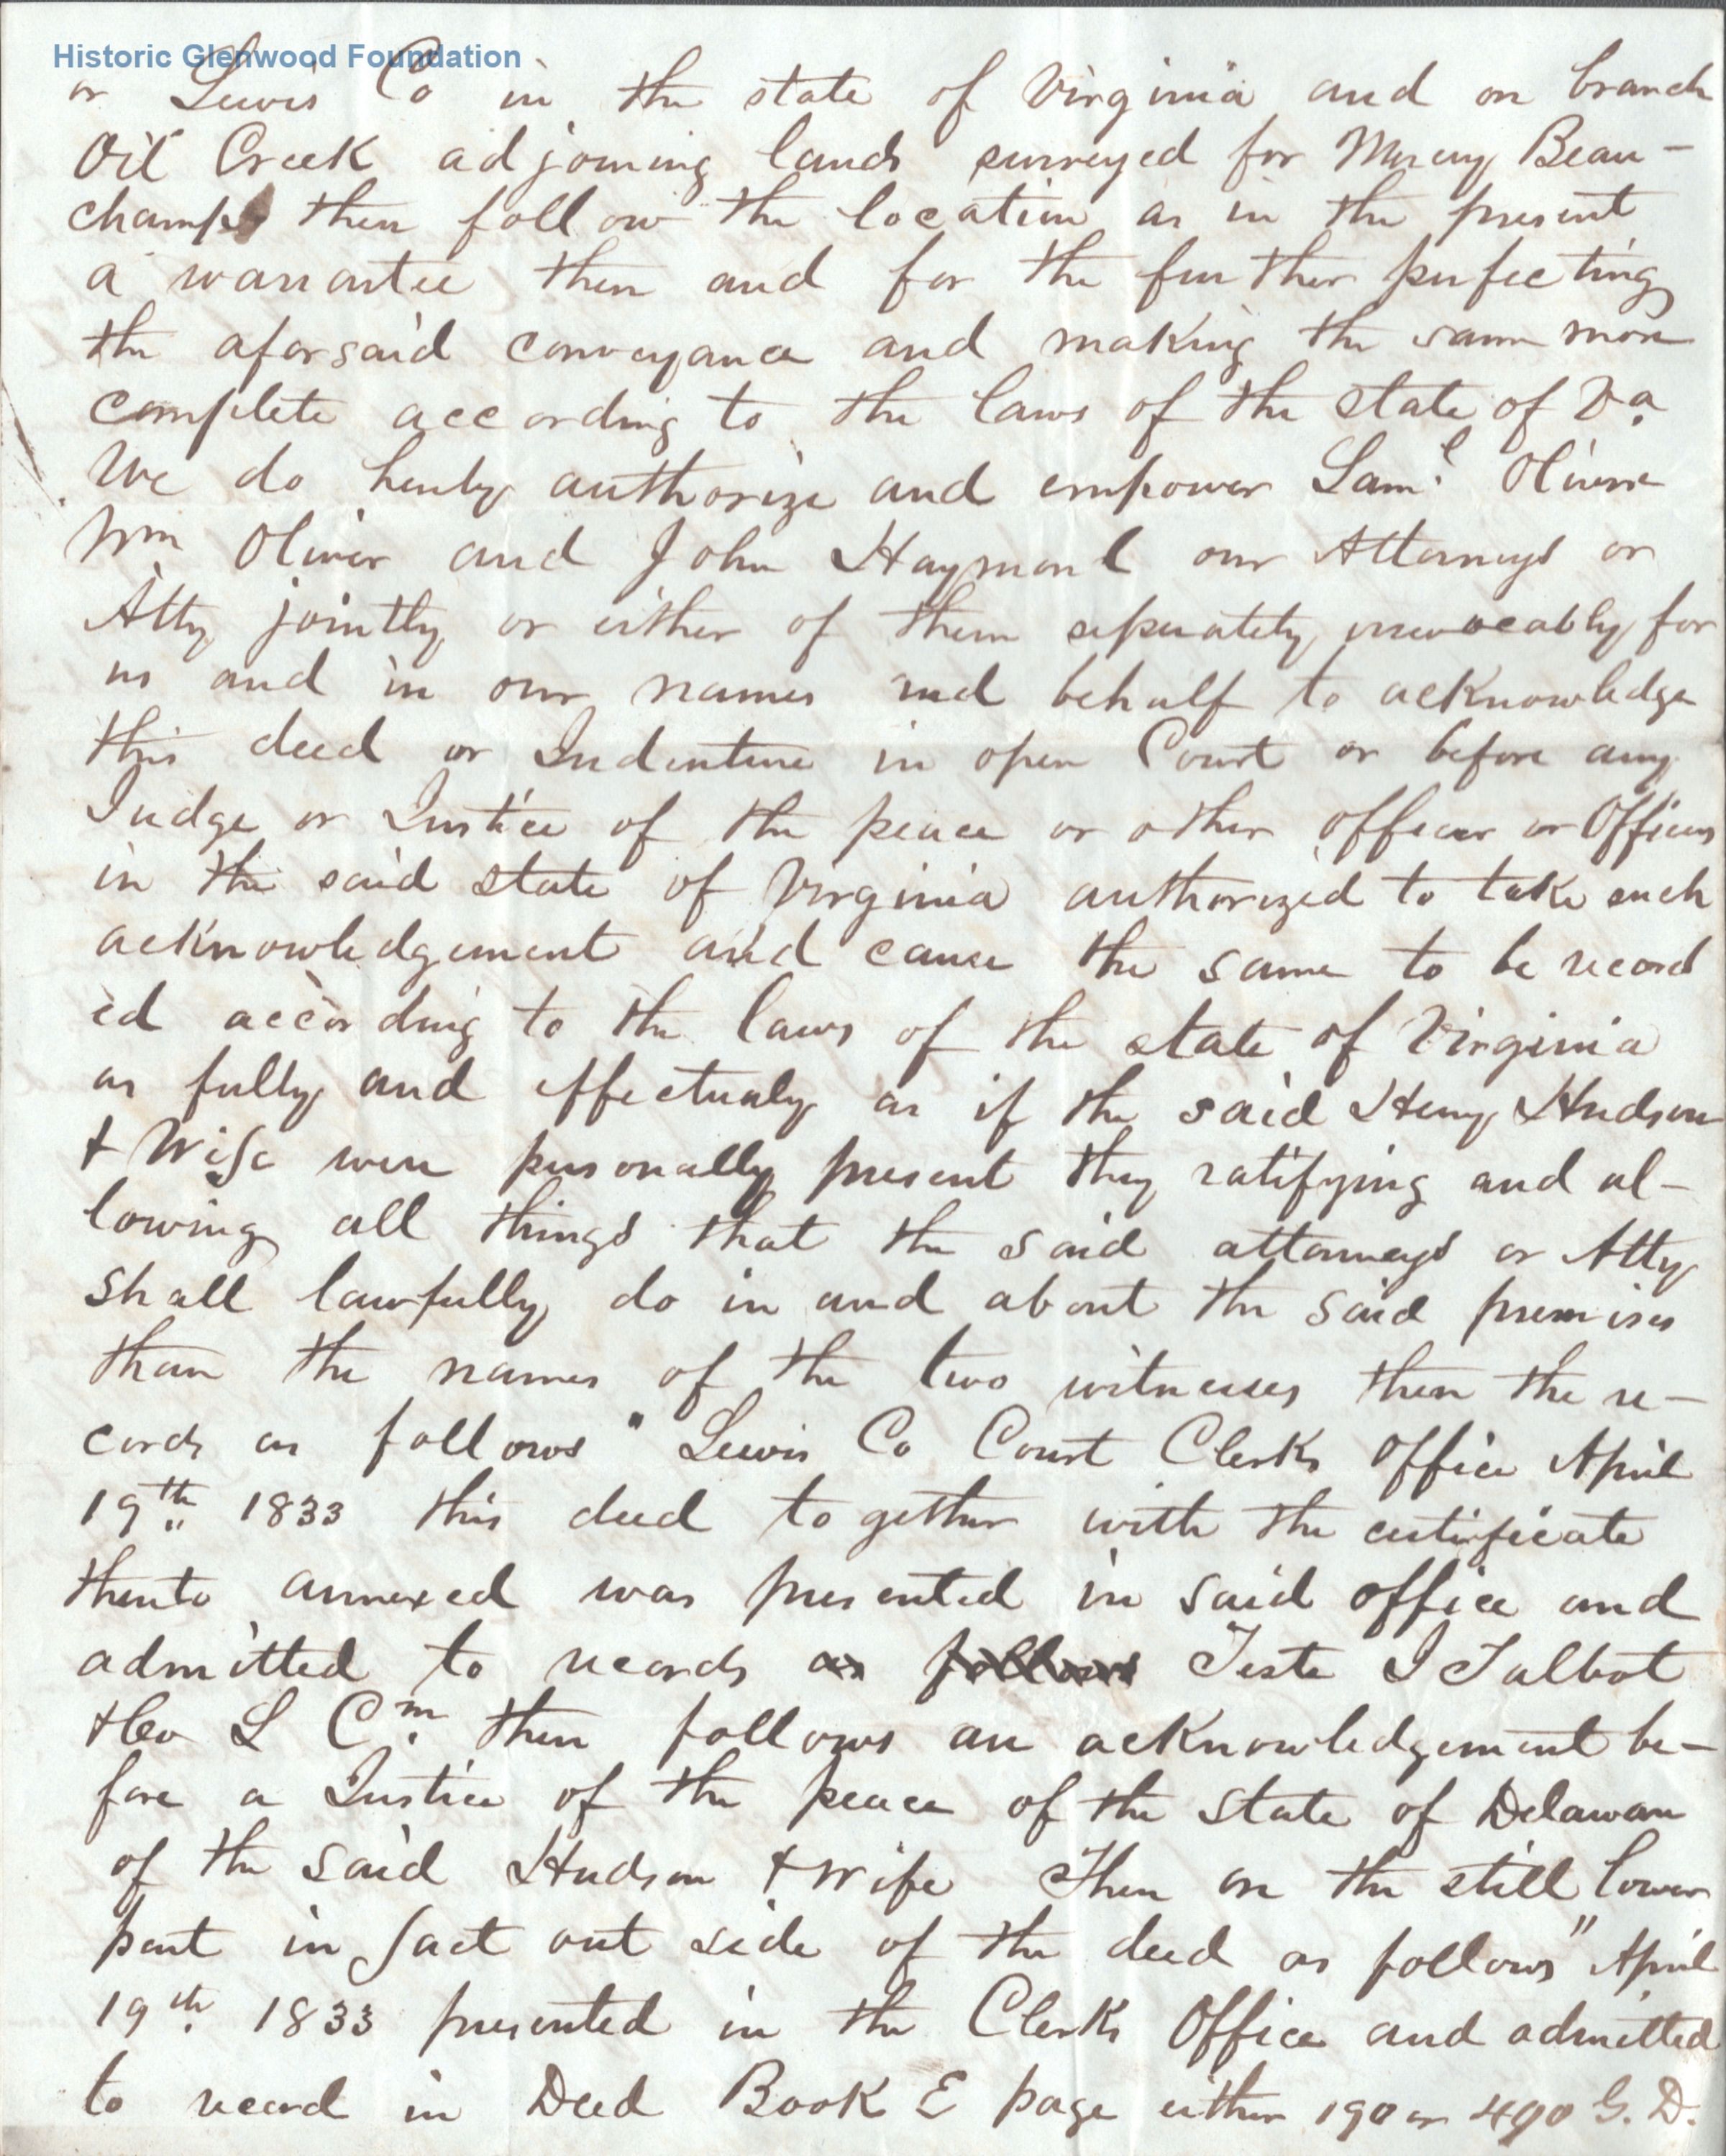 Historic Glenwood Foundation
or Lewis Co in the state of Virginia and on branch
Oil Creek adjoining lands surveyed for Beau-
champ then follow the location as in the present
a warrantee then and for the further perfecting
the aforsaid conveyance and making the same more
complete according to the laws of the state of Va.
We do hereby authorize and empower Saml Oliver
Wm Oliver and John Haymond our Attorneys or
Atty jointly or either of them seperately irrevocably for
us and in our names and behalf to acknowledge
this deed or Indenture in open Court or before any
Judge or Justice of the peace or other officer or Officers
in the said state of Virginia authorized to take such
acknowledgement and cause the same to be record
ed according to the laws of the state of Virginia
as fully and effectualy as if the said Henry Hudson
& Wife were personally present they ratifying and al-
lowing all things that the said attorneys or Atty
shall lawfully do in and about the said premises
than the names of the two witnesses then the re-
cords as follows " Lewis Co Court Clerks Office April
19th 1833 this deed together with the certificate
thereto annexed was presented in said office and
admitted to records as follows Teste J Talbot
L Cm. then follows an acknowledgement be-
fore a Justice of the peace of the state of Delaware
of the said Hudson & Wife Then on the still lower
part in fact out side of the deed as follows " April
19th. 1833 presented in the Clerks Office and admitted
to record in Deed Book E page either 190 or 490 G. D.